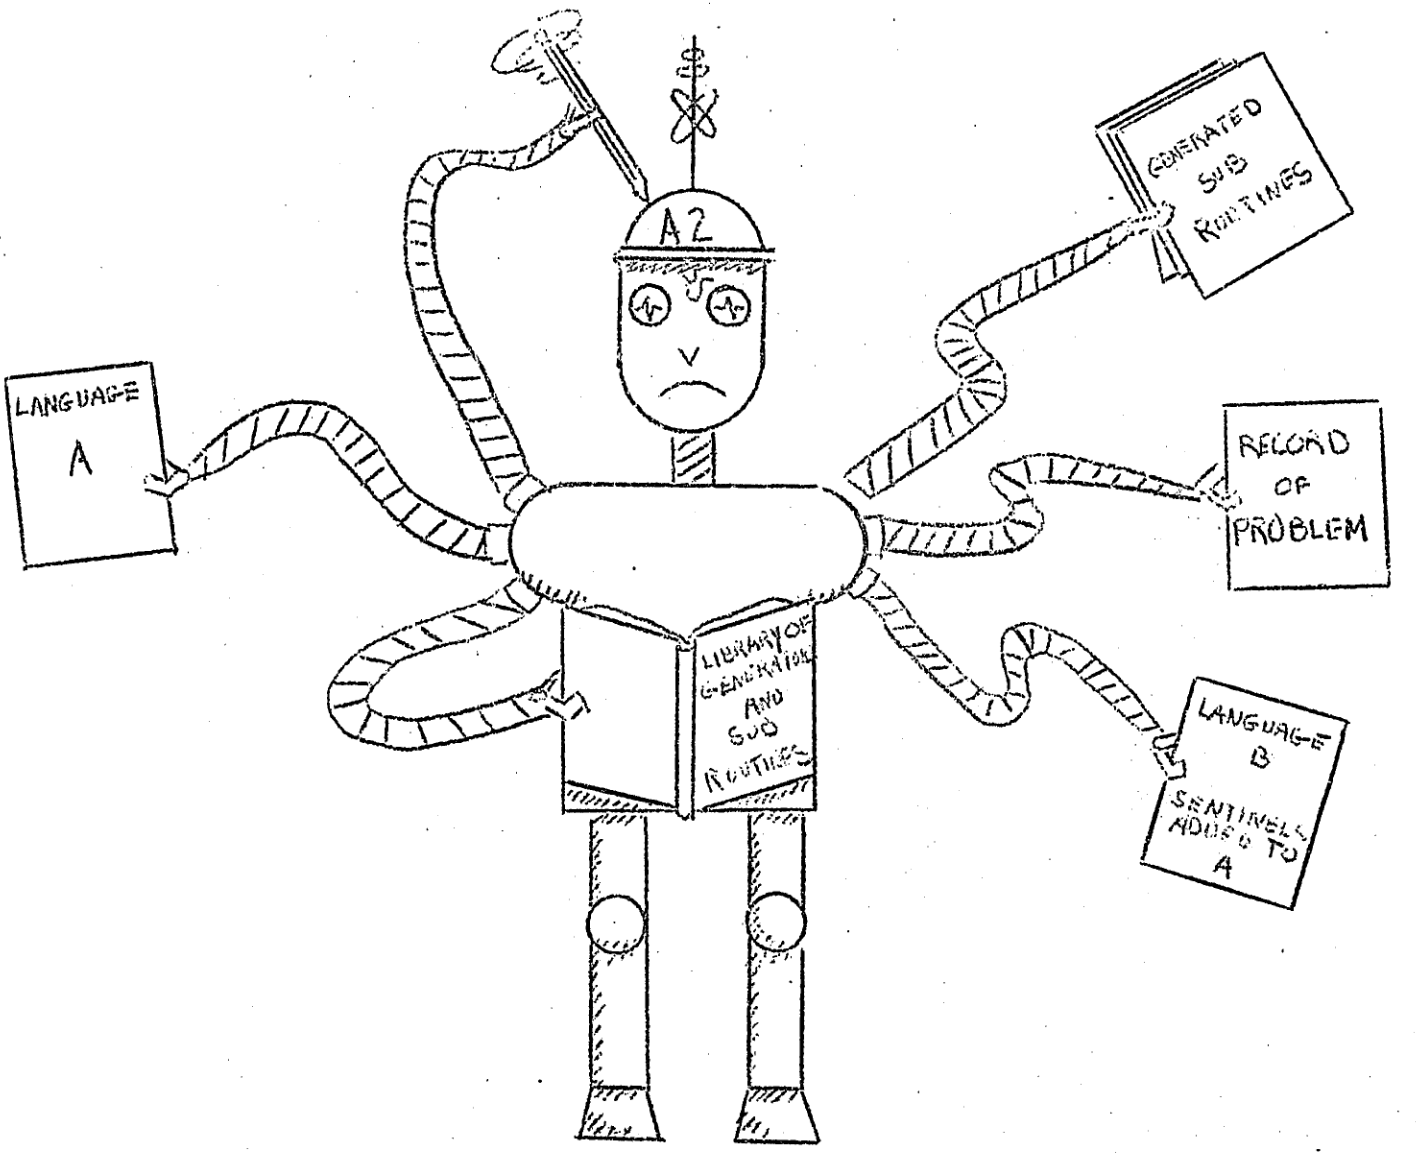 A2
GENERATED
SUB
ROUTINES
LANGUAGE
A
RECORD
OF
PROBLEM
LIBRARY OF
GENERATORS
AND
SUB
ROUTINES
LANGUAGE
B
SENTINELS
ADDED TO
A